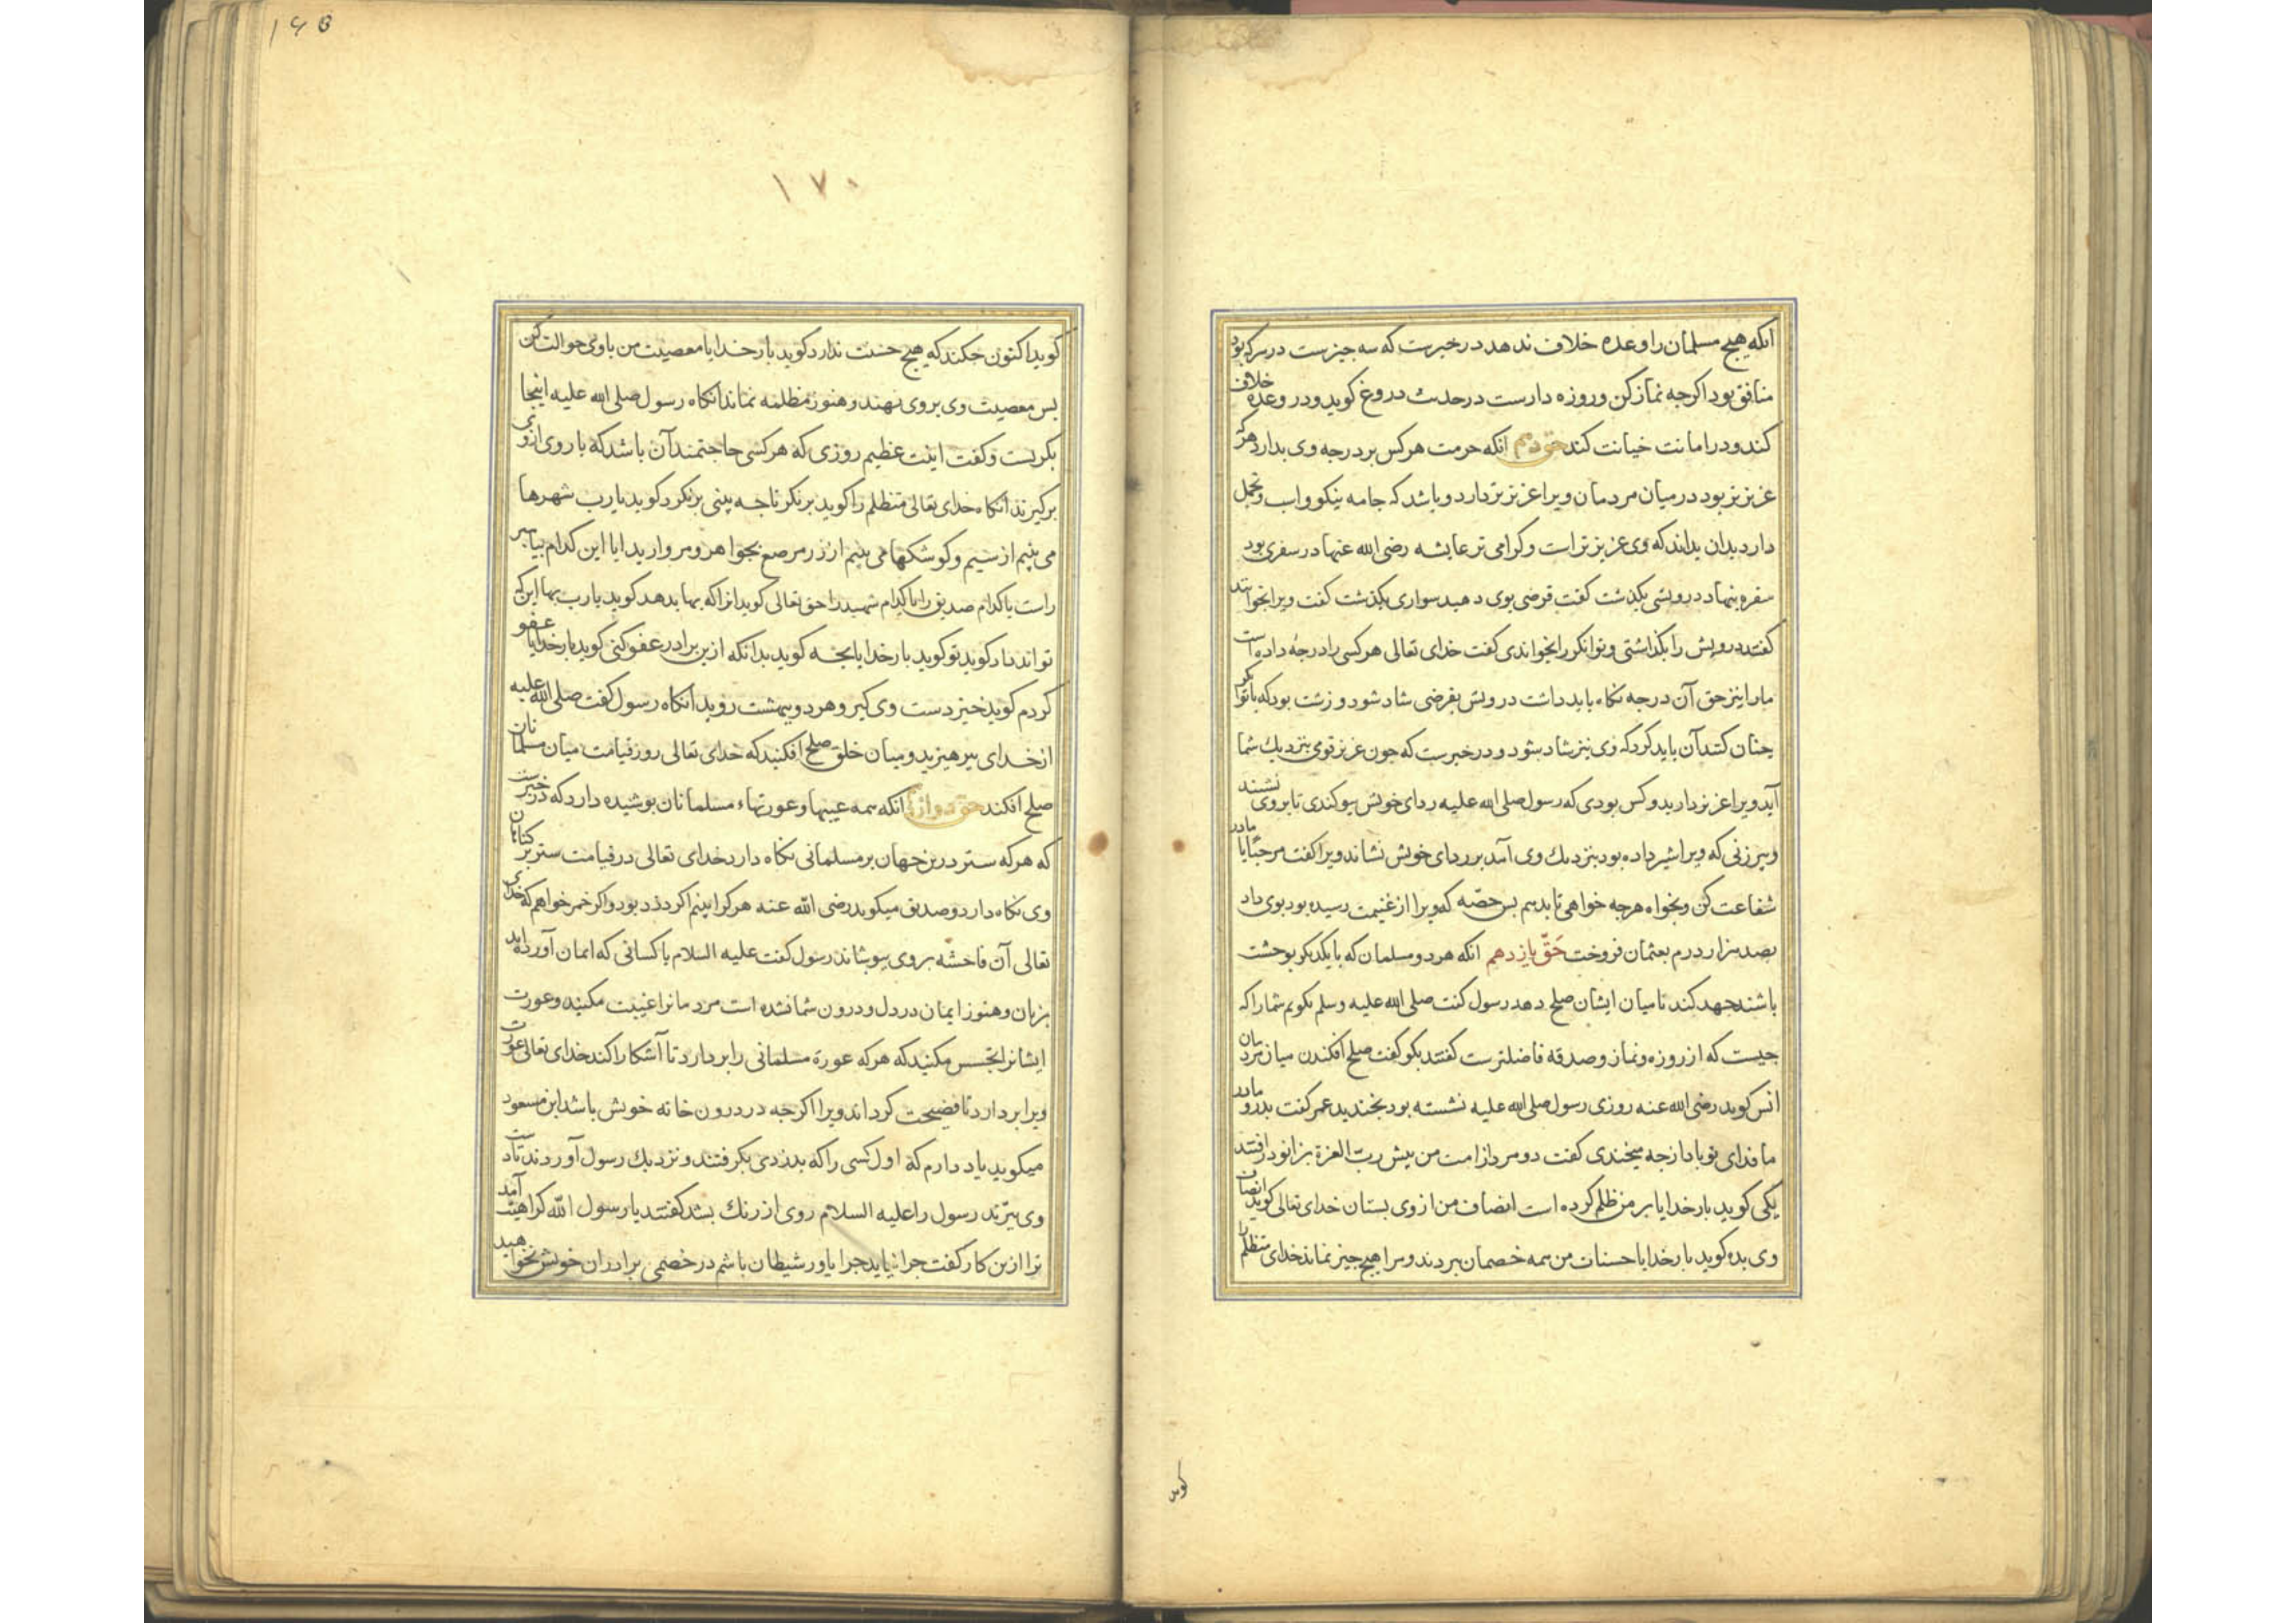 انکه هیچ مسلمان را وعده خلاف ندهد در خبرست که سه چیزست در هرکه بود
منافق بود اکرچه نماز کن و روزه دارست در حدیث دروغ کوید و در وعده خلاف
کند و در امانت خیانت کند حق دهم انکه حرمت هرکس بر درجه وی بدارد هرکه
عزیزتر بود در میان مردمان ویرا عزیزتر دارد و باشد که جامه نیکو و اسب و تجمل
دارد بدان بداند که وی عزیزتر است و کرامی تر عایشه رضی الله عنها در سفری بود
سفره بنهاد درویشی بکذشت کفت قرصی بوی دهید سواری بکذشت کفت ویرا بخوانید
کفتند درویش را بکذاشتی و توانکر را بخواندی کفت خدای تعالی هرکسی را درجهٔ داده است
ما را نیز حق آن درجه نکاه باید داشت درویش بقرصی شاد شود و زشت بود که با توانکر
چنان کنند آن باید کرد که وی نیز شاد شود و در خبرست که چون عزیز قومی بنزدیک شما
آید ویرا عزیز دارید و کس بودی که رسول صلی الله علیه ردای خویش بیوکندی تا بر وی نشستند
و پیرزنی که ویرا شیر داده بود بنزدیک وی آمد بر ردای خویش نشاند و ویرا کفت مرحبا یا مادر
شفاعت کن و بخواه هرچه خواهی تا بدهم پس حصّه که ویرا از غنیمت رسیده بود بوی داد
بصد هزار درم بعثمان فروخت حَقّ یازدهم انکه هر دو مسلمان که با یکدیکر بوحشت
باشند جهد کند تا میان ایشان صلح دهد رسول کفت صلی الله علیه وسلم بکویم شما را که
چیست که از روزه و نماز و صدقه فاضلترست کفتند بکو کفت صلح افکندن میان مردمان
انس کوید رضی الله عنه روزی رسول صلی الله علیه نشسته بود بخندید عمر کفت پدر و مادر
ما فدای تو باد از چه میخندی کفت دو مرد از امت من پیش ربّ العزة بزانو درافتند
یکی کوید بار خدایا بر من ظلم کرده است انصاف من از وی بستان خدای تعالی کوید انصاف
وی بده کوید بار خدایا حسنات من همه خصمان ببردند و مرا هیچ چیز نماند خدای متظلم را
کوید
۱۷۰
کوید اکنون چکند که هیچ حسنت ندارد کوید بار خدایا معصیت من با وی حوالت کن
پس معصیت وی بر وی نهند و هنوز مظلمه نماند انکاه رسول صلی الله علیه اینجا
بکریست و کفت اینت عظیم روزی که هرکسی حاجتمند آن باشد که باری از وی
برکیرند انکاه خدای تعالی متظلم را کوید برنکر تا چه بینی برنکرد کوید یا رب شهرها
می بینم از سیم و کوشکها می بینم از زر مرصع بجواهر و مروارید ایا این کدام پیامبر
راست یا کدام صدیق را یا کدام شهید را حق تعالی کوید انرا که بها بدهد کوید یا رب بها این که
تواند داد کوید تو کوید بار خدایا بچه کوید بدانکه ازین برادر عفو کنی کوید بار خدایا عفو
کردم کوید خیز دست وی کیر و هر دو ببهشت روید انکاه رسول کفت صلی الله علیه
از خدای بپرهیزید و میان خلق صلح افکنید که خدای تعالی روز قیامت میان مسلمانان
صلح افکند حق دوازدهم انکه همه عیبها و عورتهاء مسلمانان پوشیده دارد که در خبرست
که هرکه ستر درین جهان بر مسلمانی نکاه دارد خدای تعالی در قیامت ستر بر کناهان
وی نکاه دارد و صدیق میکوید رضی الله عنه هرکرا بینم اکر دزد بود و اکر خمر خواهم که خدای
تعالی آن فاحشه بر وی بپوشاند رسول کفت علیه السلام یا کسانی که ایمان آورده اید
بزبان و هنوز ایمان در دل و درون شما نشده است مردمانرا غیبت مکنید و عورت
ایشانرا تجسس مکنید که هرکه عورة مسلمانی را بردارد تا آشکارا کند خدای تعالی عورت
ویرا بردارد تا فضیحت کرداند ویرا اکرچه در درون خانه خویش باشد ابن مسعود
میکوید یاد دارم که اول کسی را که بدزدی بکرفتند و نزدیک رسول آوردند تا دست
وی ببرند رسول را علیه السلام روی از رنک بشد کفتند یا رسول الله کراهیت آمد
ترا ازین کار کفت چرا نیاید چرا یاور شیطان باشم در خصمی برادران خویش نخواهید